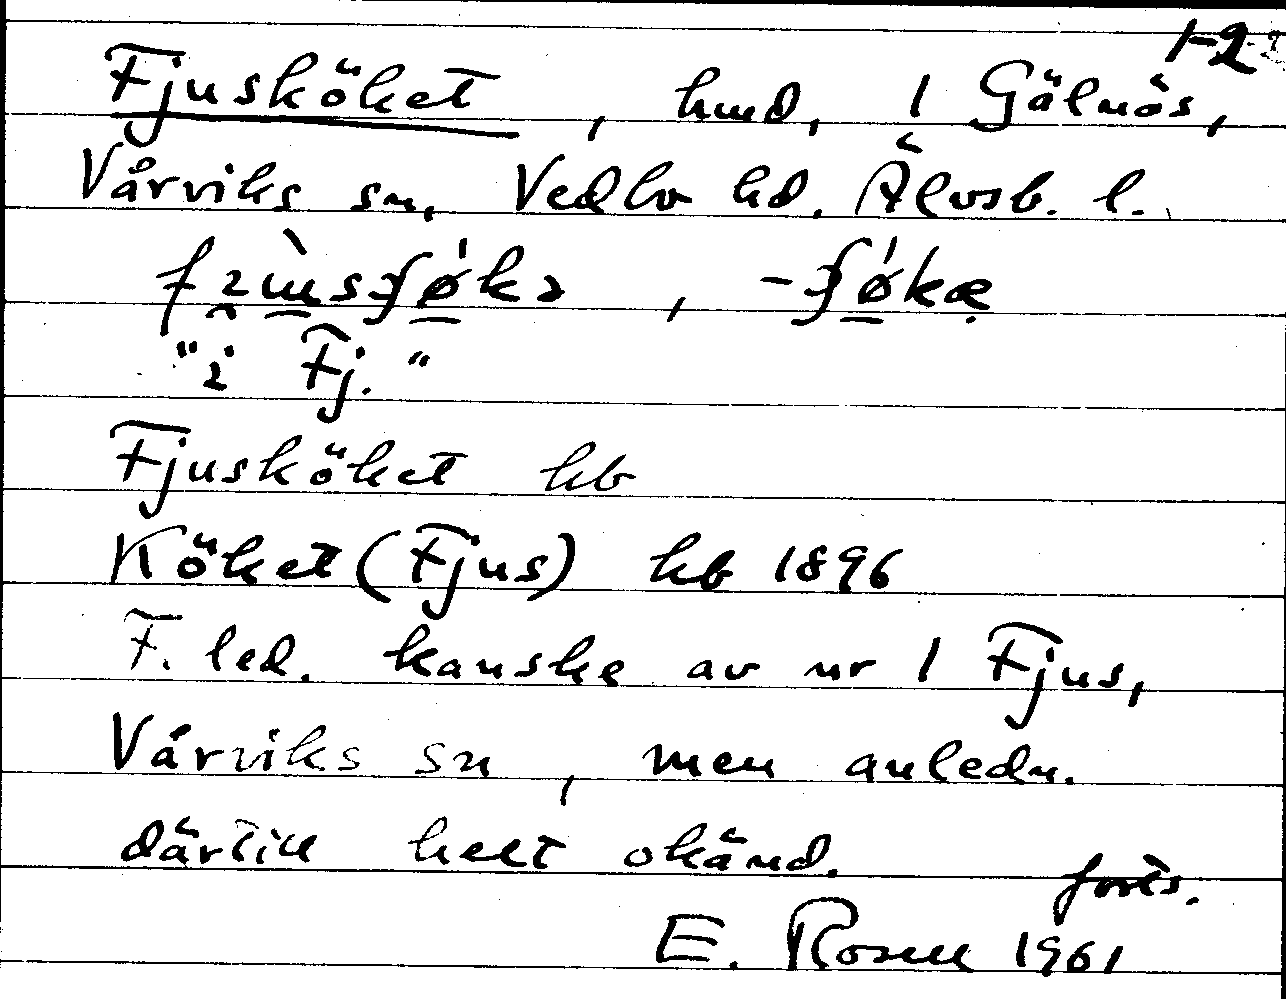 1-2
Fjusköket, hmd, 1 Gälnäs,
Vårviks sn, Vedbo hd. Älvsb. l.
"i Fj."
Fjusköket kb
Köket (Fjus) kb 1896
F. led. kanske av nr 1 Fjus,
Vårviks sn, men anledn.
därtill helt okänd.
forts.
E. Rosell 1961